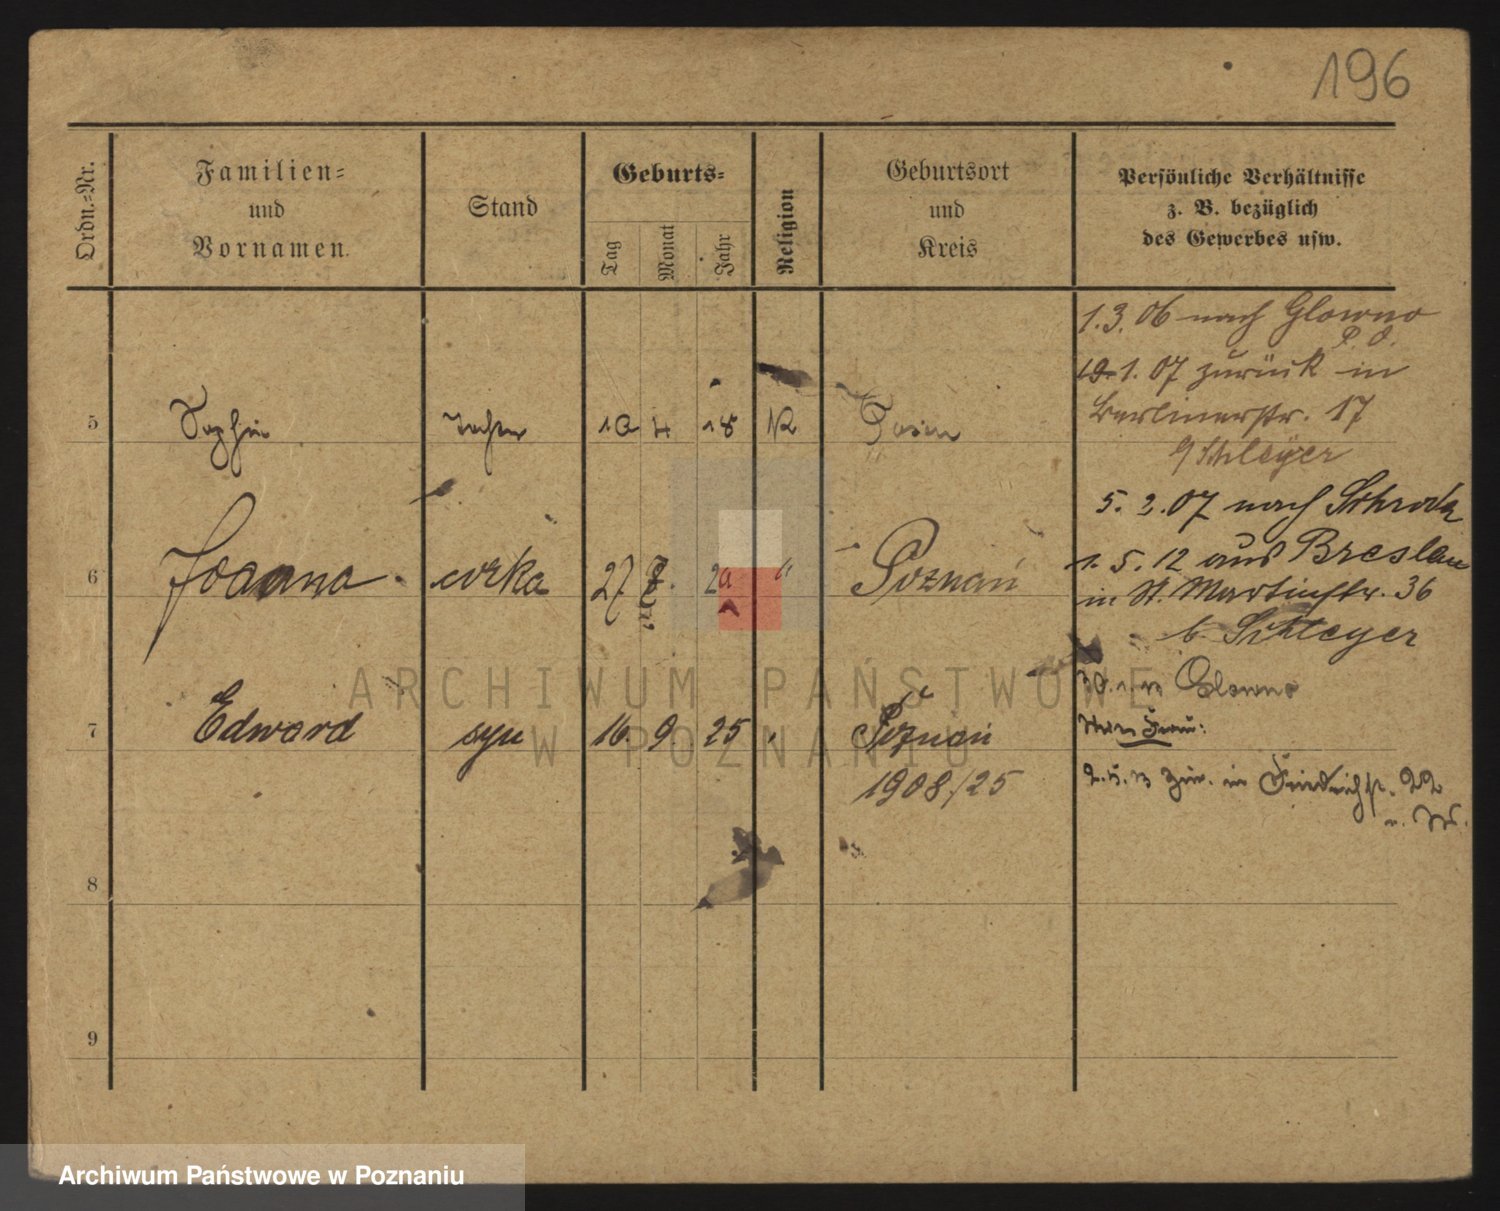 196
Ordn.-Nr.
Familien-
und
Vornamen.
Stand
Geburts-
Tag
Monat
Jahr
Religion
Geburtsort
und
Kreis
Persönliche Verhältnisse
z. B. bezüglich
des Gewerbes usw.
1.3.06 nach Glowno
P. O.
1.07 zurück in
Berlinerstr. 17
Schleyer
5 Sophie Tochter 10 4 18 Posen
5.2.07 nach Schroda
1.5.12 aus Breslau
in St. Martinstr. 36
b. Schleyer
6 Joanna córka 27 20 " Poznań
Glowno
7 Edward syn 16 9 25 Poznań
Frau:
1908/25
zur. in Friedrichstr. 22
8
9
ARCHIWUM PAŃSTWOWE
W POZNANIU
Archiwum Państwowe w Poznaniu